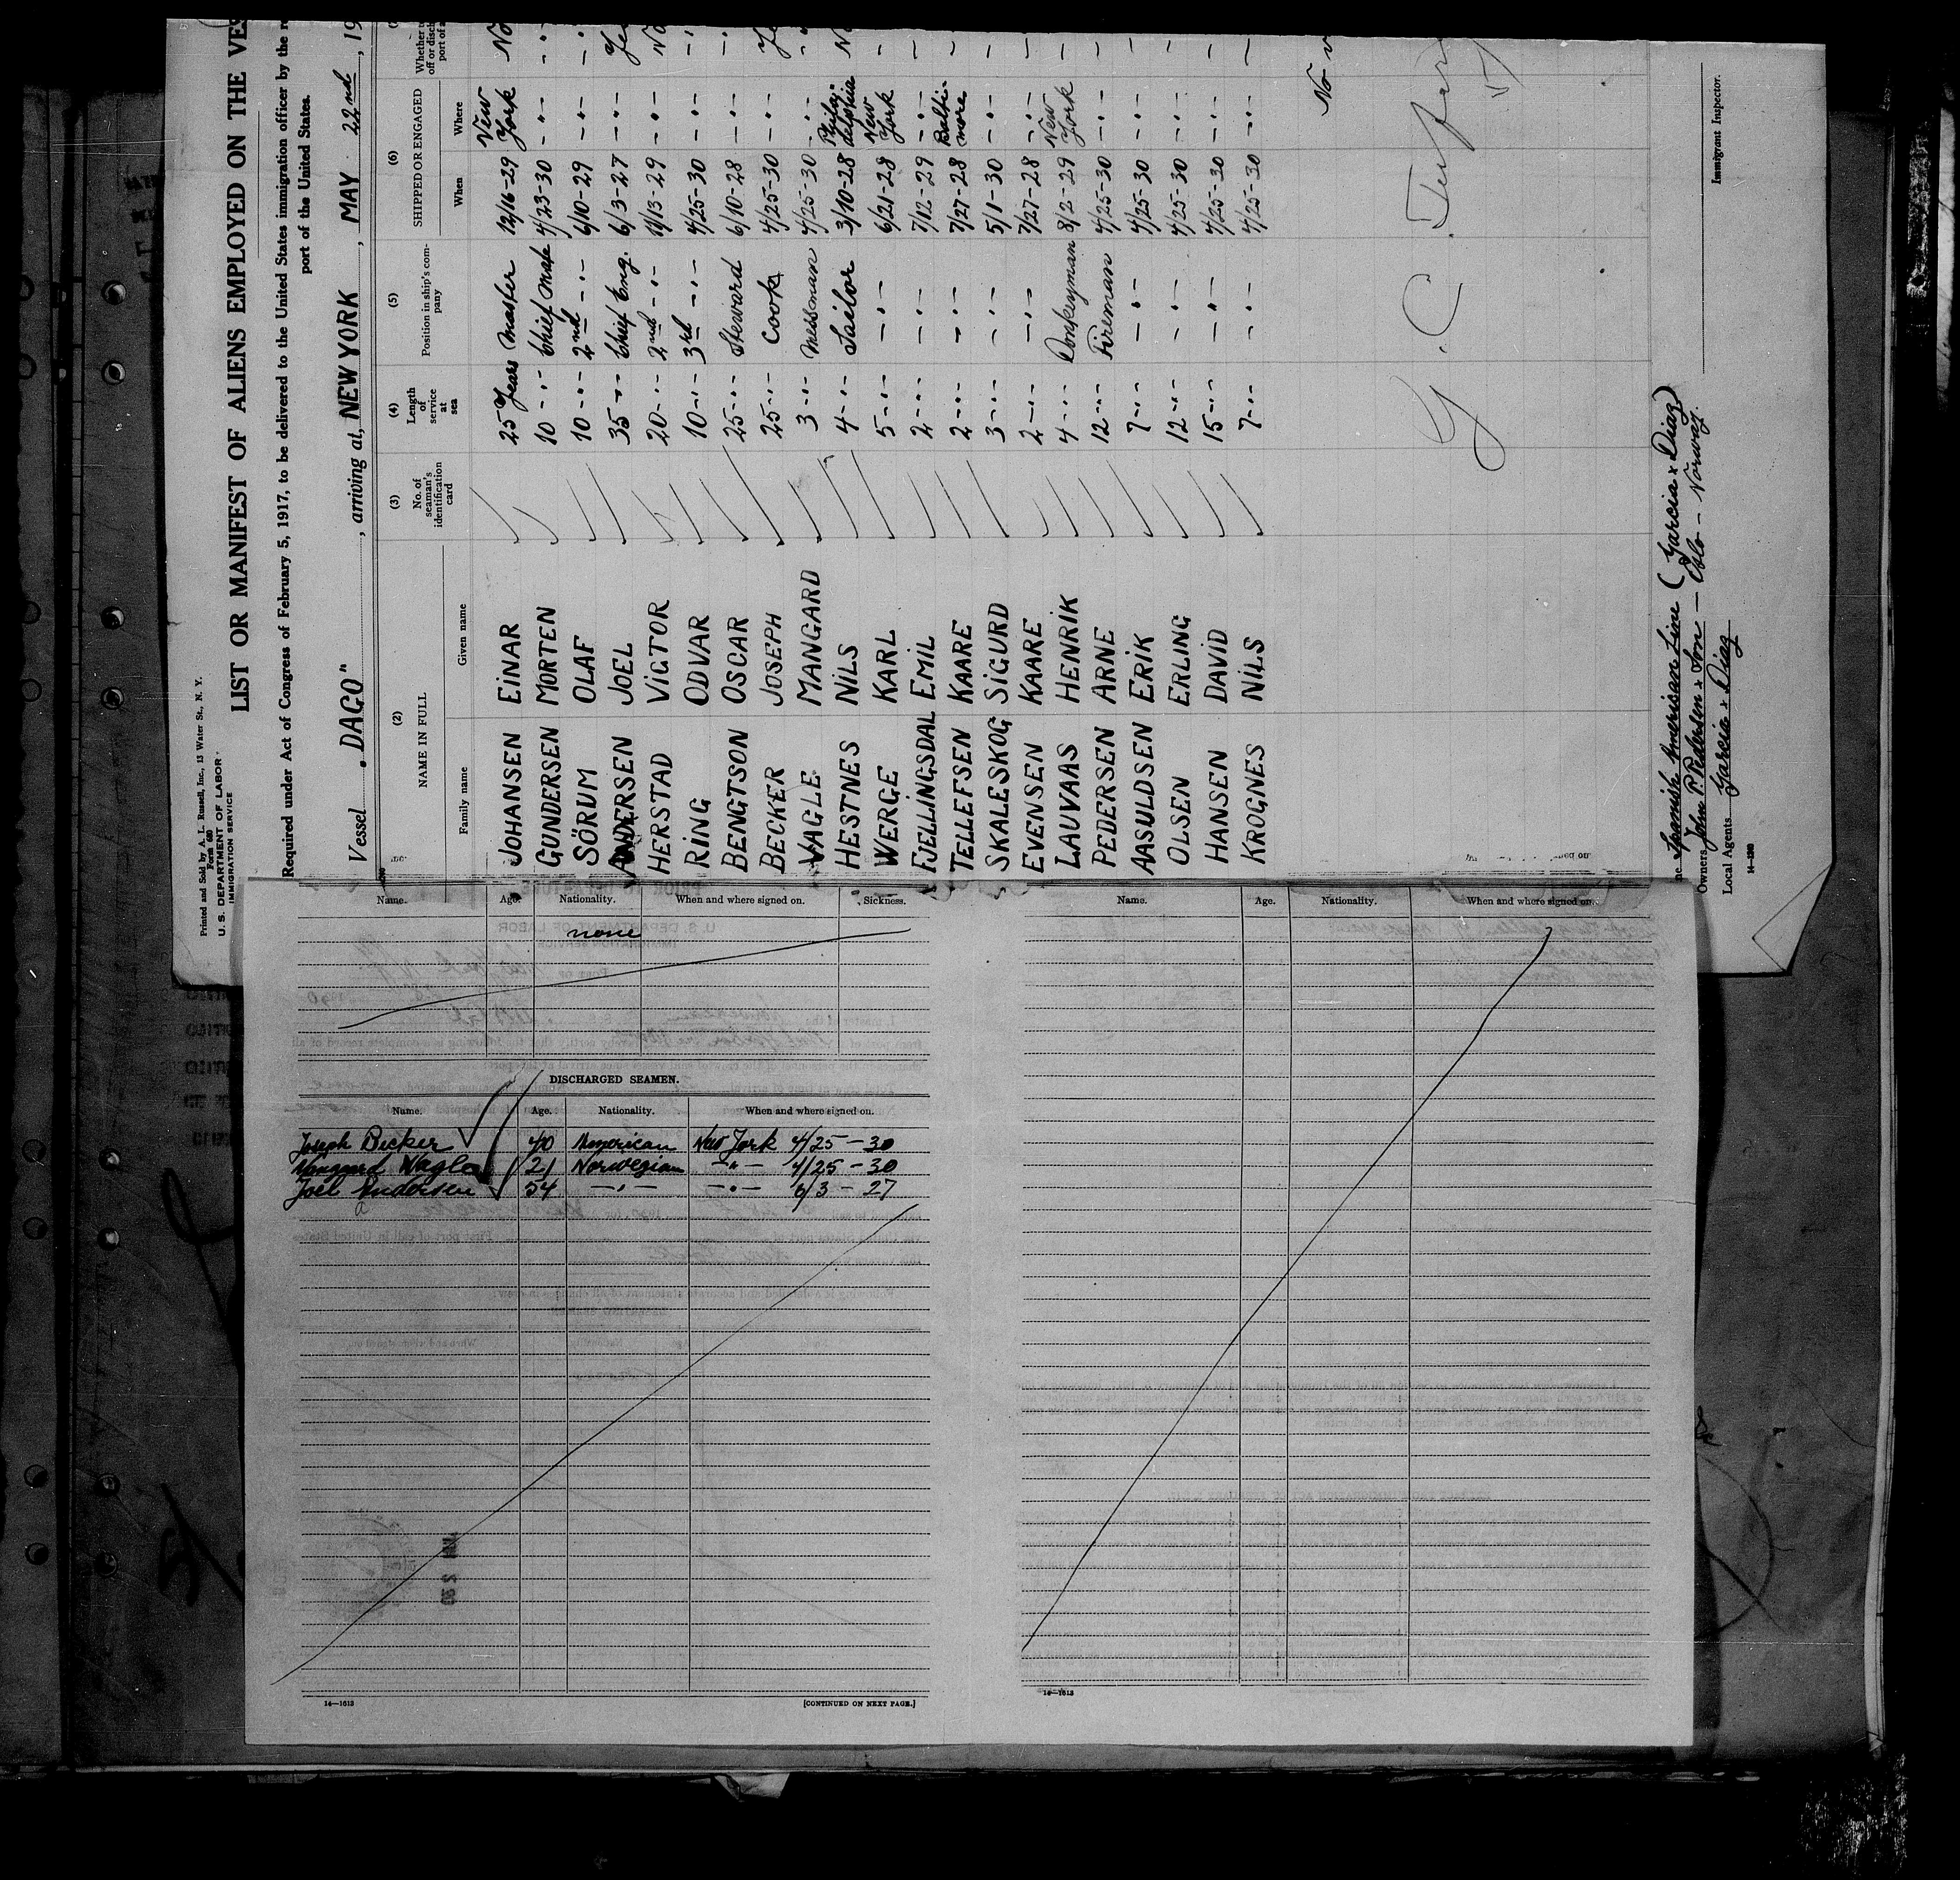 Printed and Sold by A. L. Russell, Inc., 13 Water St., N. Y.
Form 680
U. S. DEPARTMENT OF LABOR
IMMIGRATION SERVICE
LIST OR MANIFEST OF ALIENS EMPLOYED ON THE VES
Required under Act of Congress of February 5, 1917, to be delivered to the United States immigration officer by the
port of the United States.
Vessel "DAGO", arriving at, NEW YORK, MAY 22nd, 19
(2) (3) (4) (5) (6)
NAME IN FULL No. of seaman's identification card Length of service at sea Position in ship's company SHIPPED OR ENGAGED Whether
Family name Given name When Where
JOHANSEN EINAR 25 Years Master 12/16-29 New York No
GUNDERSEN MORTEN 10 -"- Chief Mate 4/23-30 -"- -"-
SÖRUM OLAF 10 -"- 2nd -"- 6/10-29 -"-
ANDERSEN JOEL 35 -"- Chief Eng. 6/3-27 -"- Ye
HERSTAD VIGTOR 20 -"- 2nd -"- 11/13-29 -"- No
RING ODVAR 10 -"- 3rd -"- 4/25-30 -"-
BENGTSON OSCAR 25 -"- Steward 6/10-28 -"-
BECKER JOSEPH 25 -"- Cook 4/25-30 -"- Ye
VAGLE MANGARD 3 -"- Messman 4/25-30 -"-
HESTNES NILS 4 -"- Sailor 3/10-28 Philadelphia N
WERGE KARL 5 -"- -"- 6/21-28 New York
FJELLINGSDAL EMIL 2 -"- -"- 7/12-29 -"-
TELLEFSEN KAARE 2 -"- -"- 7/27-28 Baltimore
SKALESKOG SIGURD 3 -"- -"- 5/1-30 -"-
EVENSEN KAARE 2 -"- -"- 7/27-28 -"-
LAUVAAS HENRIK 4 -"- Donkeyman 8/2-29 New York
PEDERSEN ARNE 12 -"- Fireman 4/25-30 -"-
AASULDSEN ERIK 7 -"- -"- 4/25-30 -"-
OLSEN ERLING 12 -"- -"- 4/25-30 -"-
HANSEN DAVID 15 -"- -"- 4/25-30 -"-
KROGNES NILS 7 -"- -"- 4/25-30 -"-
No
Spanish American Line (Garcia & Diaz)
Owners John P. Pedersen & Son - Oslo - Norway.
Local Agents Garcia & Diaz
Immigrant Inspector.
14-1240
Name. Age. Nationality. When and where signed on. Sickness.
none
DISCHARGED SEAMEN.
Name. Age. Nationality. When and where signed on.
Joseph Becker 40 American New York 4/25-30
Mangaard Wagle 21 Norwegian -"- 4/25-30
Joel Andersen 54 -"- -"- 6/3-27
14—1613
[CONTINUED ON NEXT PAGE.]
Name. Age. Nationality. When and where signed on.
14—1613